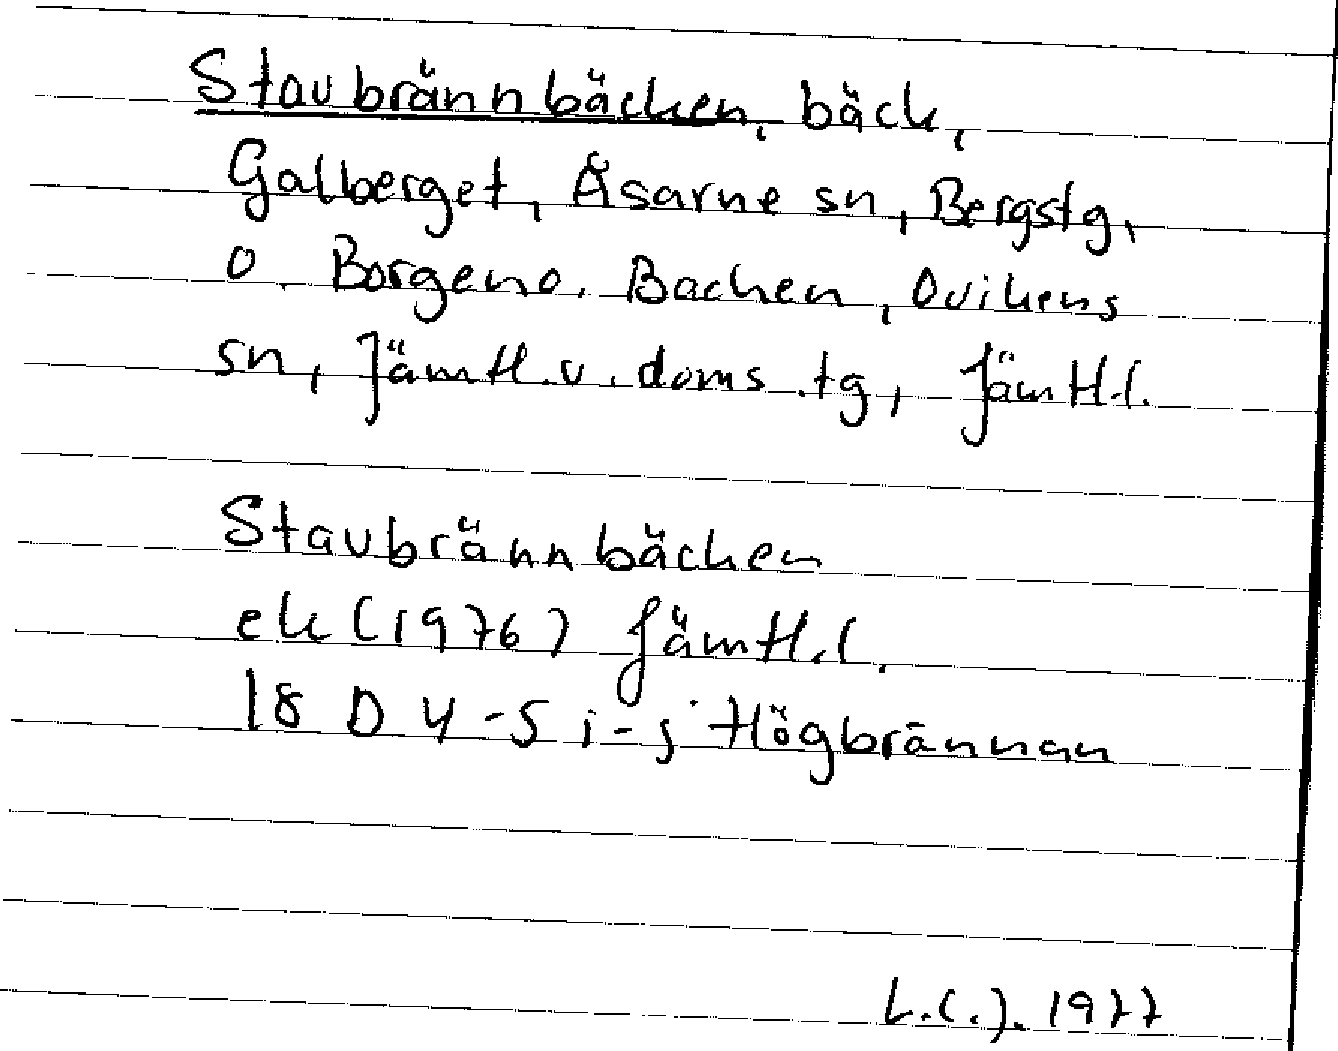 Staubrännbäcken, bäck,
Galberget, Åsarne sn, Bergstg,
o. Borgeno. Backen, Ovikens
sn, Jämtl. v. doms. tg, Jämtl. l.
Staubrännbäcken
ek (1976) Jämtl. l.
18 D 4-5 i-j Högbrännan
1977